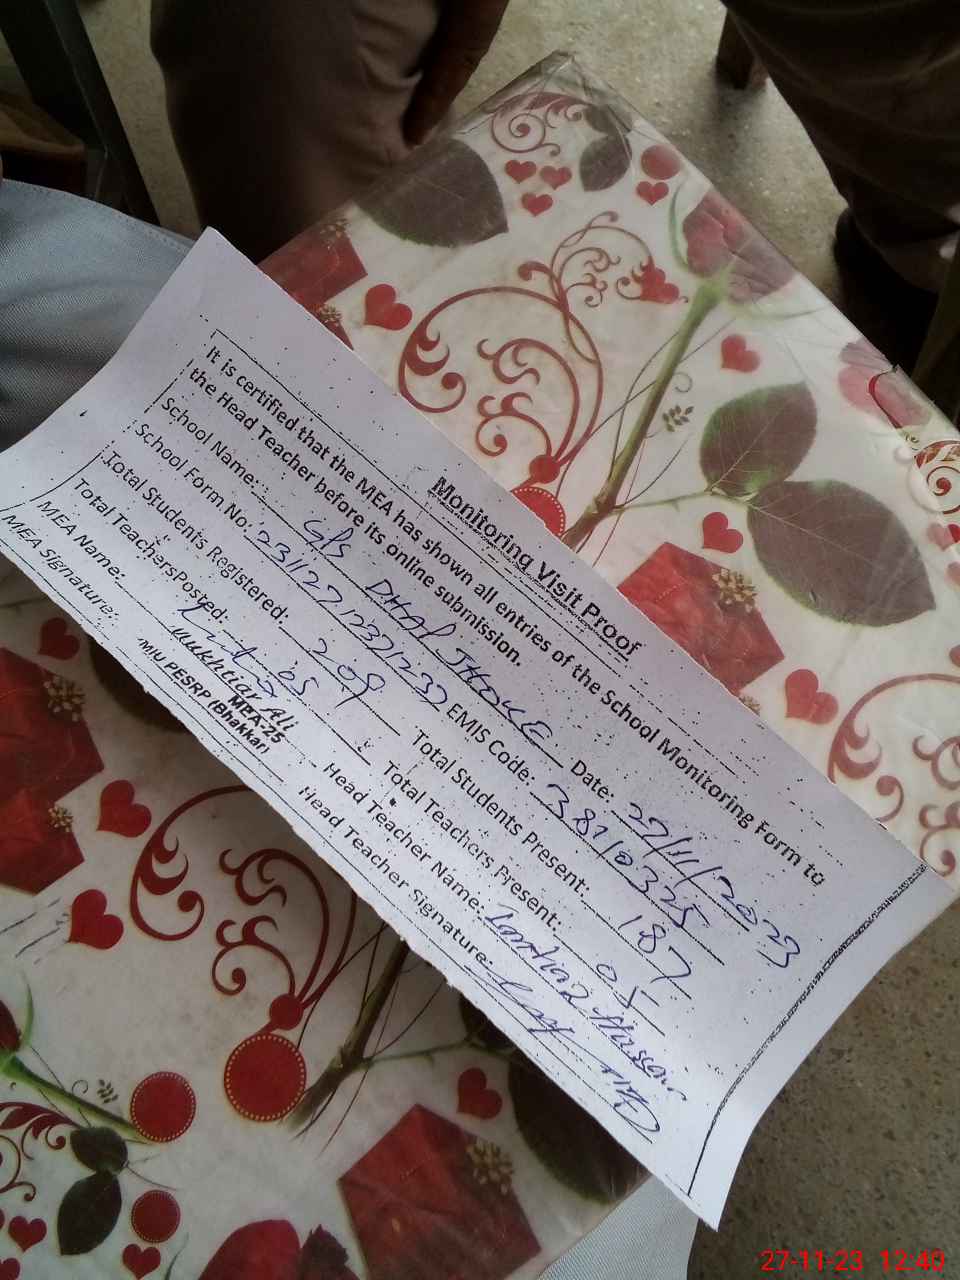 Monitoring Visit Proof
It is certified that the MEA has shown all entries of the School Monitoring Form to
the Head Teacher before its online submission.
School Name: GPS DHAP JHOKE Date: 27/11/2023
School Form No: EMIS Code: 38710325
Total Students Registered: 209 Total Students Present: 187
Total TeachersPosted: 05 Total Teachers Present: 05
MEA Name: Mukhtiar Ali Head Teacher Name: Imtiaz Hussain
MEA Signature: Head Teacher Signature:
MEA-25
MIU PESRP
(Bhakkar)
27-11-23 12:40